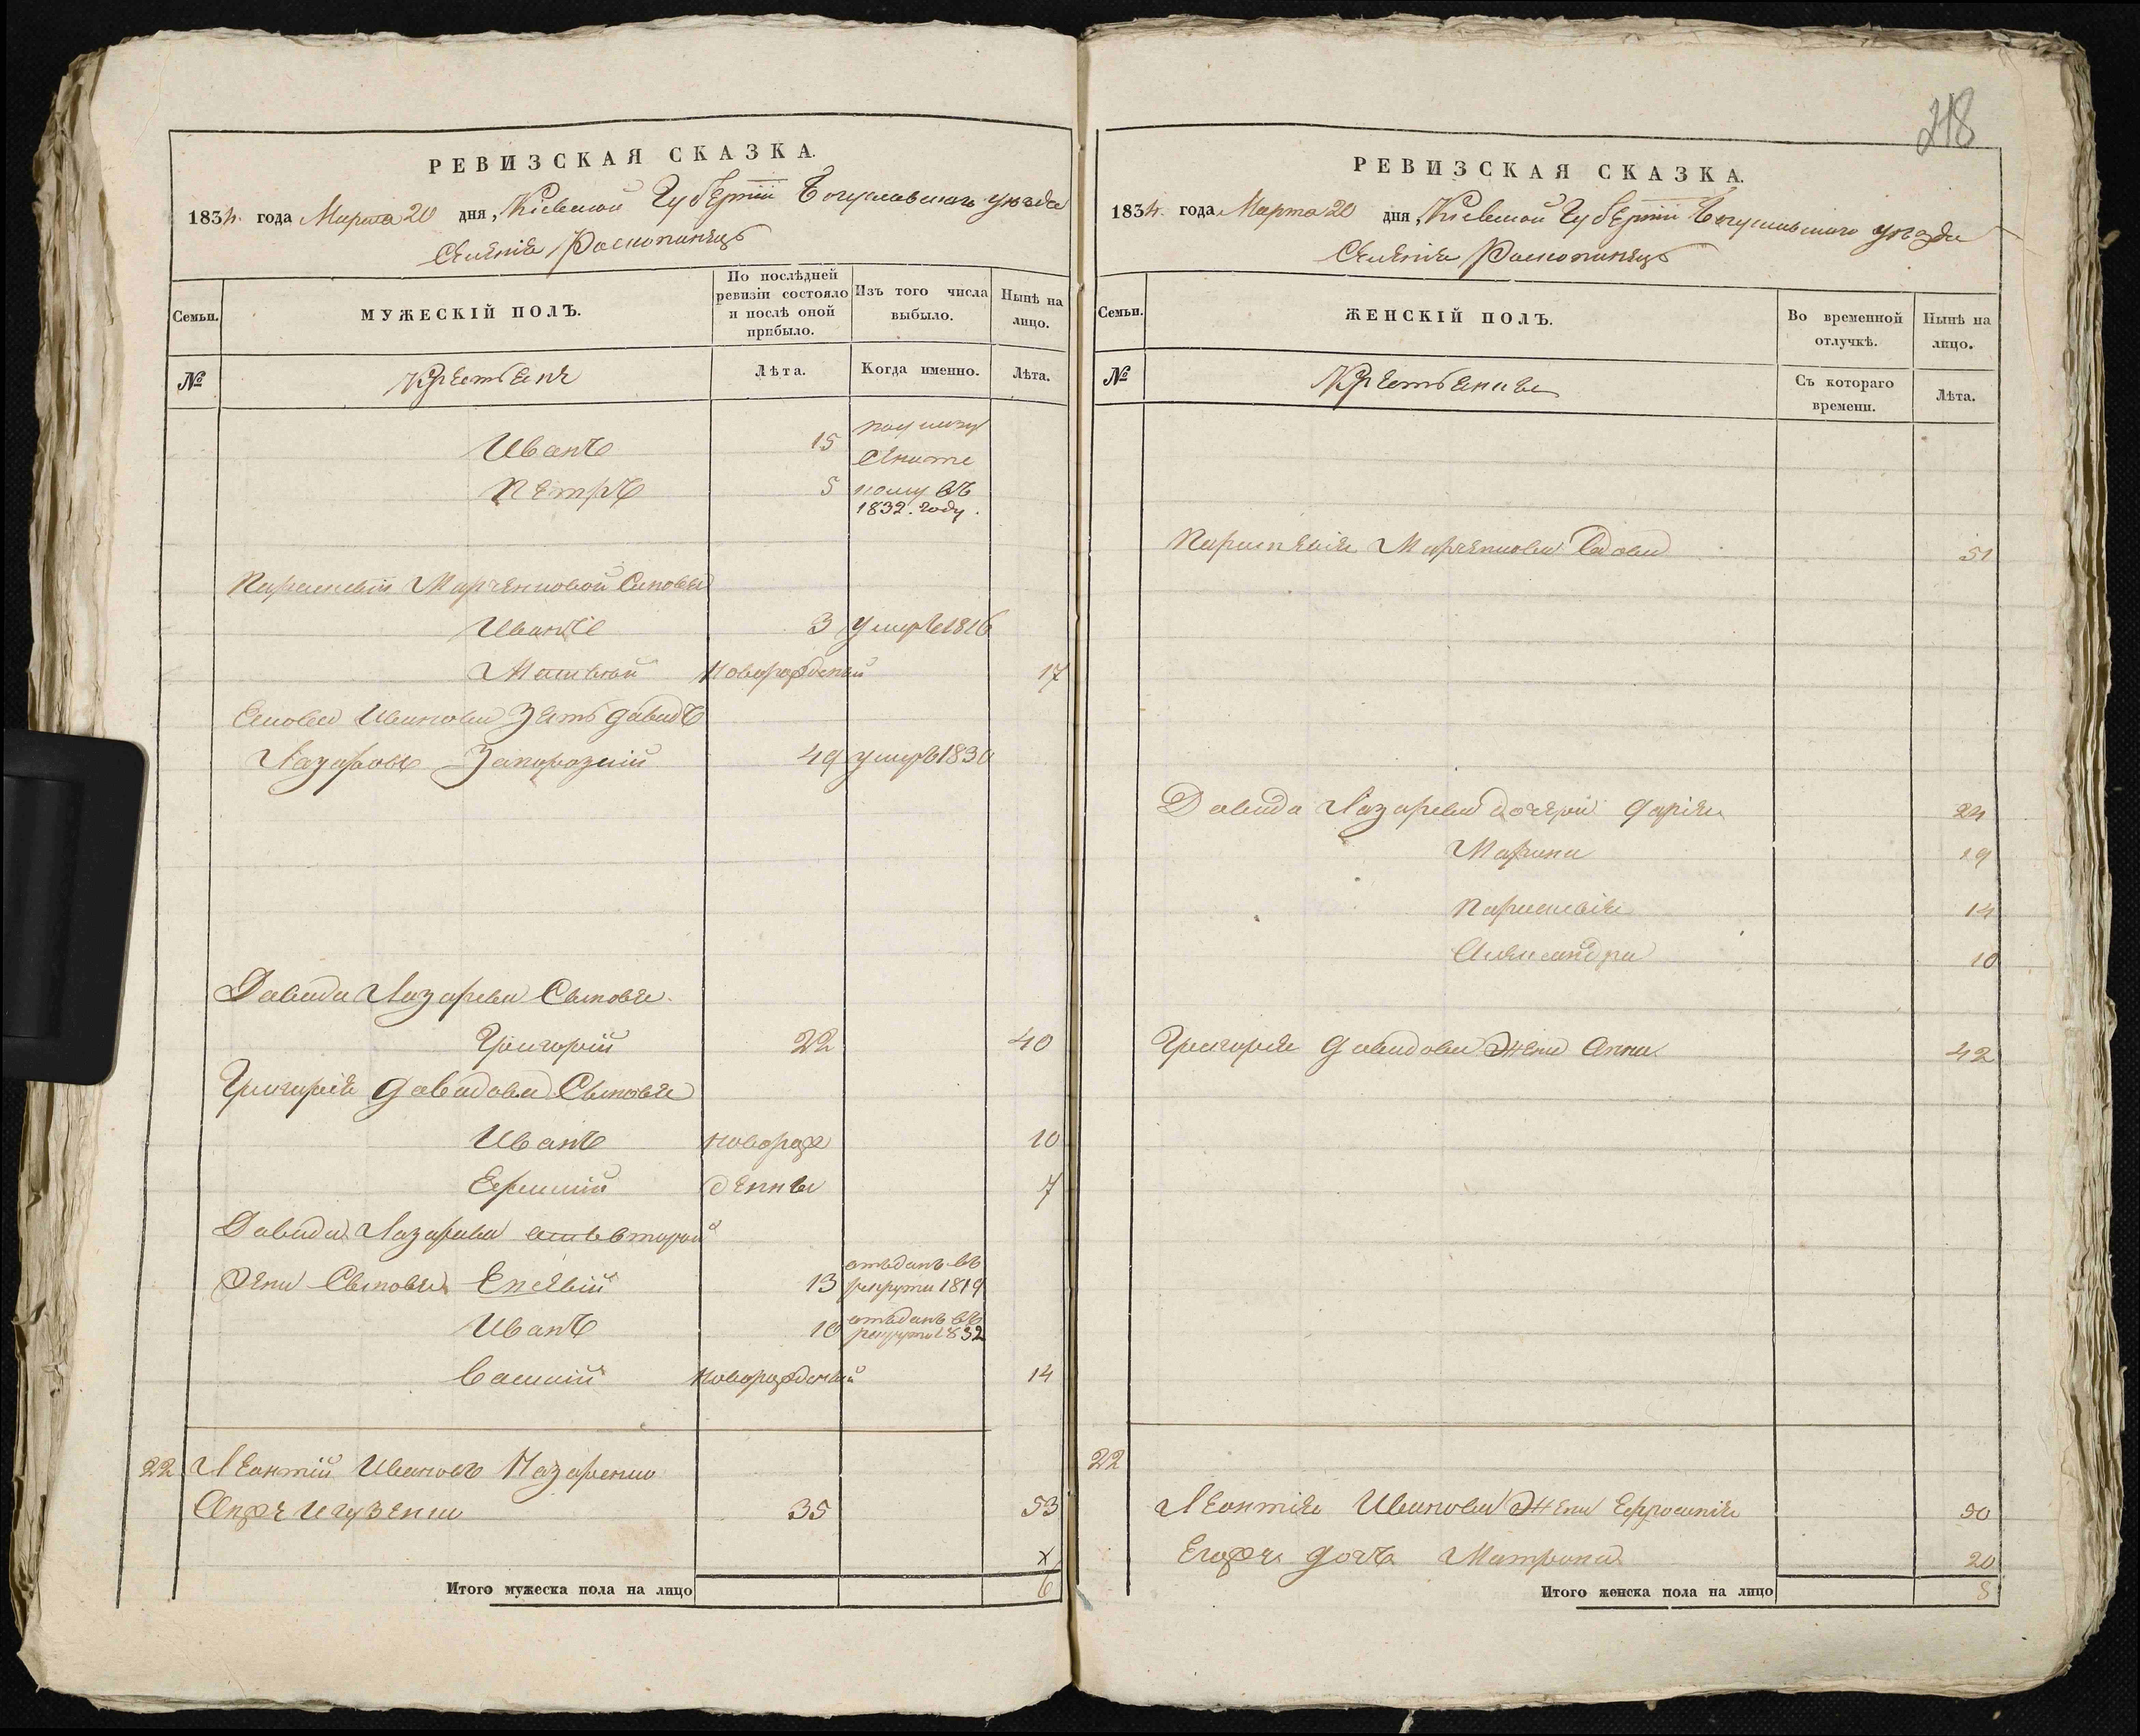 РЕВИЗСКАЯ СКАЗКА.
1834. года Марта 20 дня, Кіевской Губерніи Богуславскаго уѣзда
Селенія Роскопинецъ
Семьи.
МУЖЕСКІЙ ПОЛЪ.
По послѣдней ревизіи состояло и послѣ оной прибыло.
Изъ того числа выбыло.
Нынѣ на лицо.
№
Крестьяне
Лѣта.
Когда именно.
Лѣта.
Иванъ 15
Петръ 5 въ
1832. году.
Параскевіи Марченковой Сыновья
Иванъ 3 умеръ 1816
новорожденый 17
Иванова Зять Давидъ
Лазаровъ Запорозкій 49 умеръ 1830
Давида Лазарева Сыновья
Григорій 22 40
Григорія Давидова Сыновья
Иванъ новорож 10
Ефимій денны 7
Давида Лазарева отъ второй
жены Сыновья Евсевій 13 отъданъ въ рекруты 1819
Иванъ 10 отъданъ въ рекруты 1832
Василій новорожденый 14
22 Леонтій Ивановъ Назаренко
Онже Игузенко 35 53
х
Итого мужеска пола на лицо 6
218
РЕВИЗСКАЯ СКАЗКА.
1834. года Марта 20 дня, Кіевской Губерніи Богуславскаго уѣзда
Селенія Роскопинецъ
Семьи.
ЖЕНСКІЙ ПОЛЪ.
Во временной отлучкѣ.
Нынѣ на лицо.
№
Крестьянки
Съ котораго времени.
Лѣта.
Параскевія Марченкова Вдова 51
Давида Лазарева дочери Дарія 24
Марина 19
Параскевія 14
Александра 10
Григорія Давидова Жена Анна 42
22
Леонтія Иванова Жена Ефросинія 50
Егоже дочь Матрона 20
Итого женска пола на лицо 8